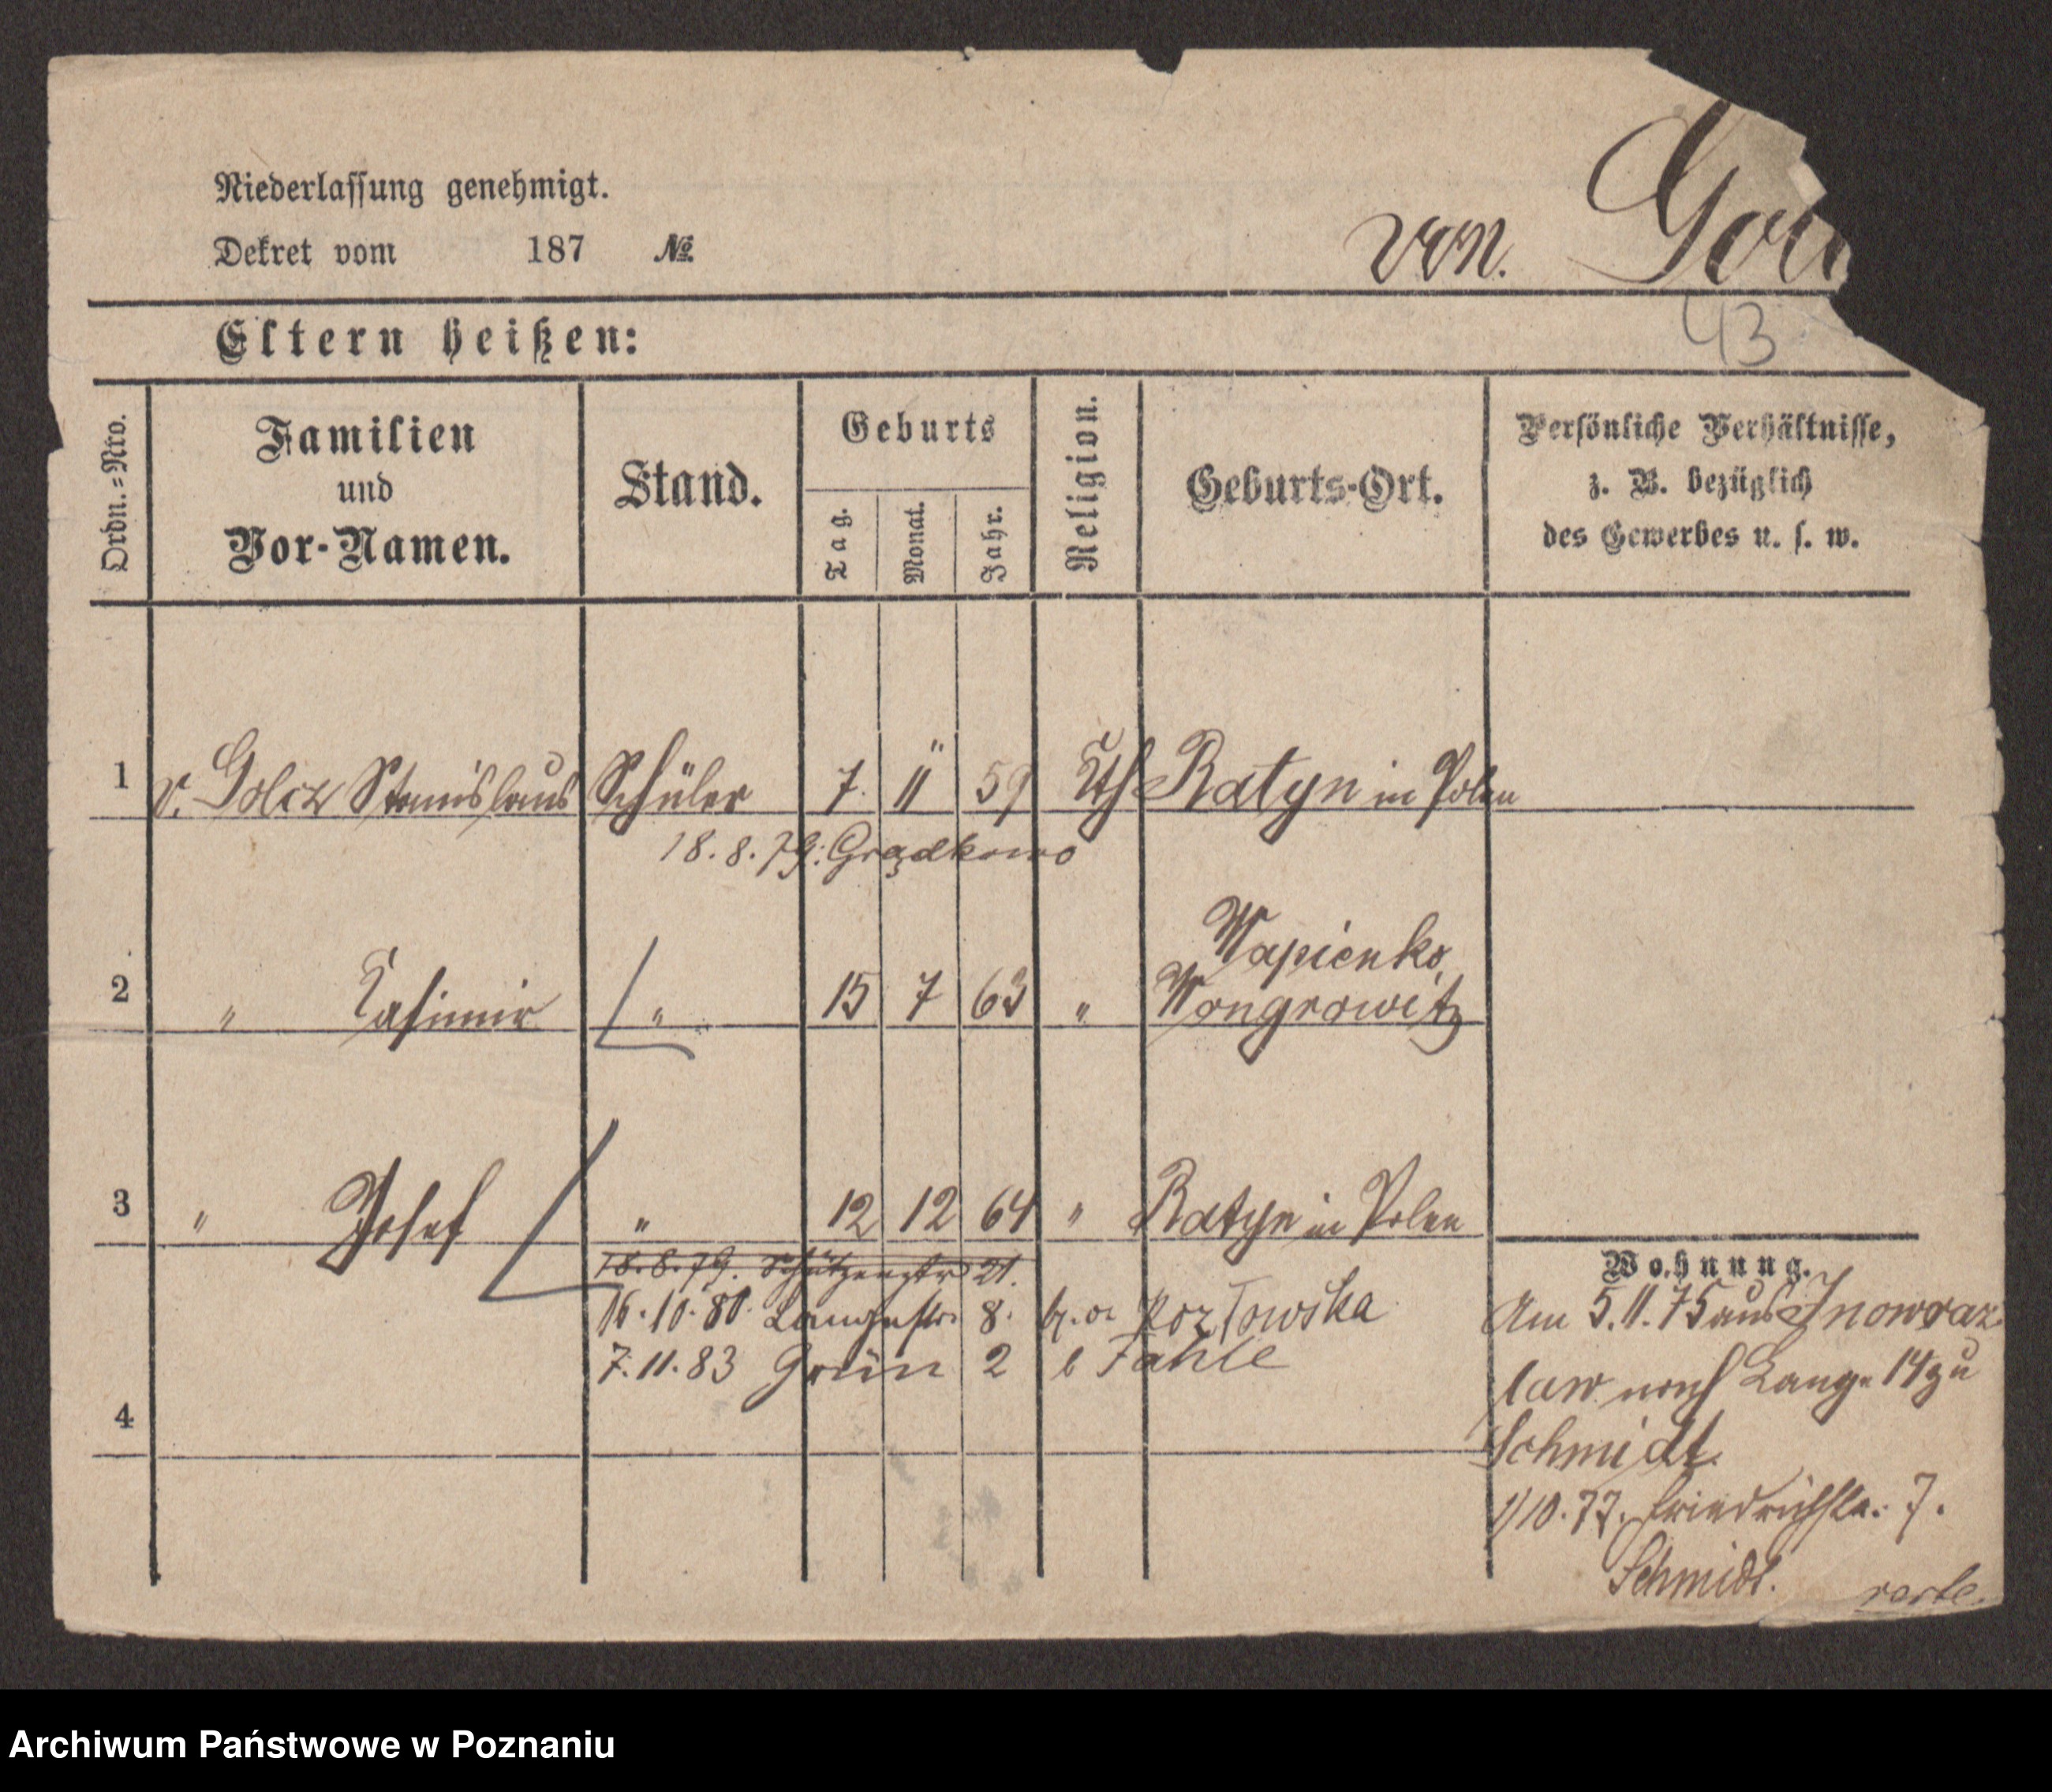 Niederlassung genehmigt.
Dekret vom 187 №
von.
43
Eltern heißen:
Ordn.=Nro.
Familien und Vor-Namen.
Stand.
Geburts
Tag. Monat. Jahr.
Religion.
Geburts-Ort.
Persönliche Verhältnisse,
z. B. bezüglich
des Gewerbes u. s. w.
1 v. Golcz Stanislaus Schüler 7. 11 59 Kth Ratyn in Polen
18.8.79. Grądkowo
Wapienko,
2 " Kasimir " 15 7 63 " Wongrowitz
3 " Josef " 12 12 64 " Ratyn in Polen
18.8.79. Schützenstr 21.
16.10.80. 8. Kozłowska
7.11.83 Grün 2 b Fahle
4
Wohnung.
Am 5.11.75 aus Inowraz
law nach Lang. 14 zu
Schmidt.
1/10.77. Friedrichstr. 7.
Schmidt.
verte.
Archiwum Państwowe w Poznaniu